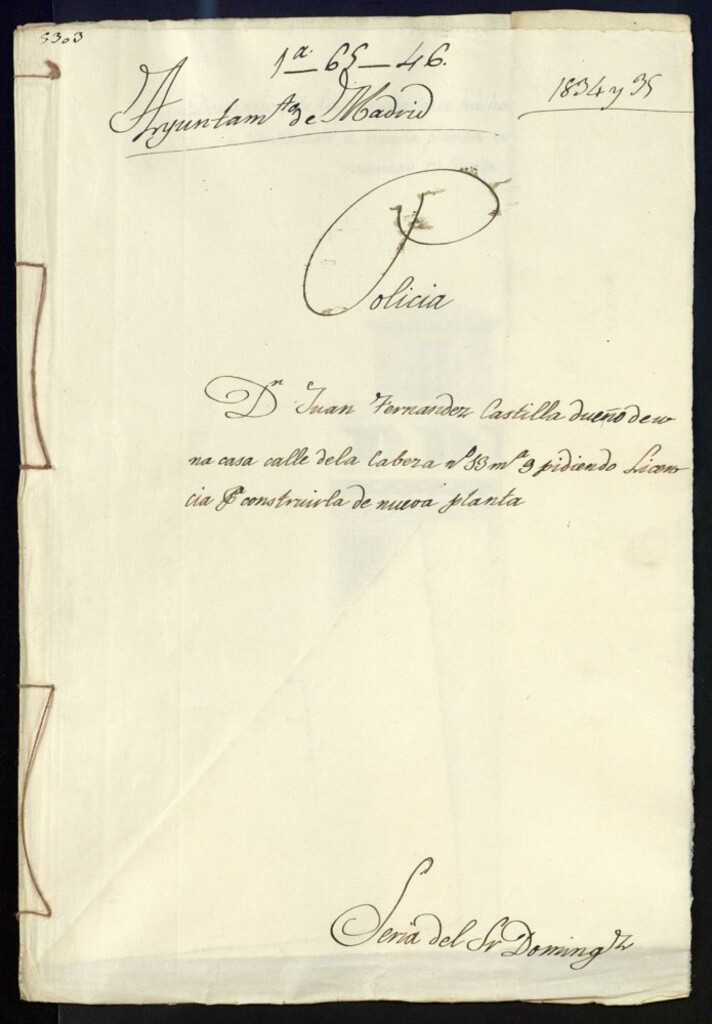 5303
1ª-65-46.
Ayuntamto de Madrid
1834 y 35
Policia
Dn Juan Fernandez Castilla dueño de u
na casa calle dela Cabeza nº 13 mª 9 pidiendo Licen
cia Pª construirla de nueva planta
Seria del Sr Domingz